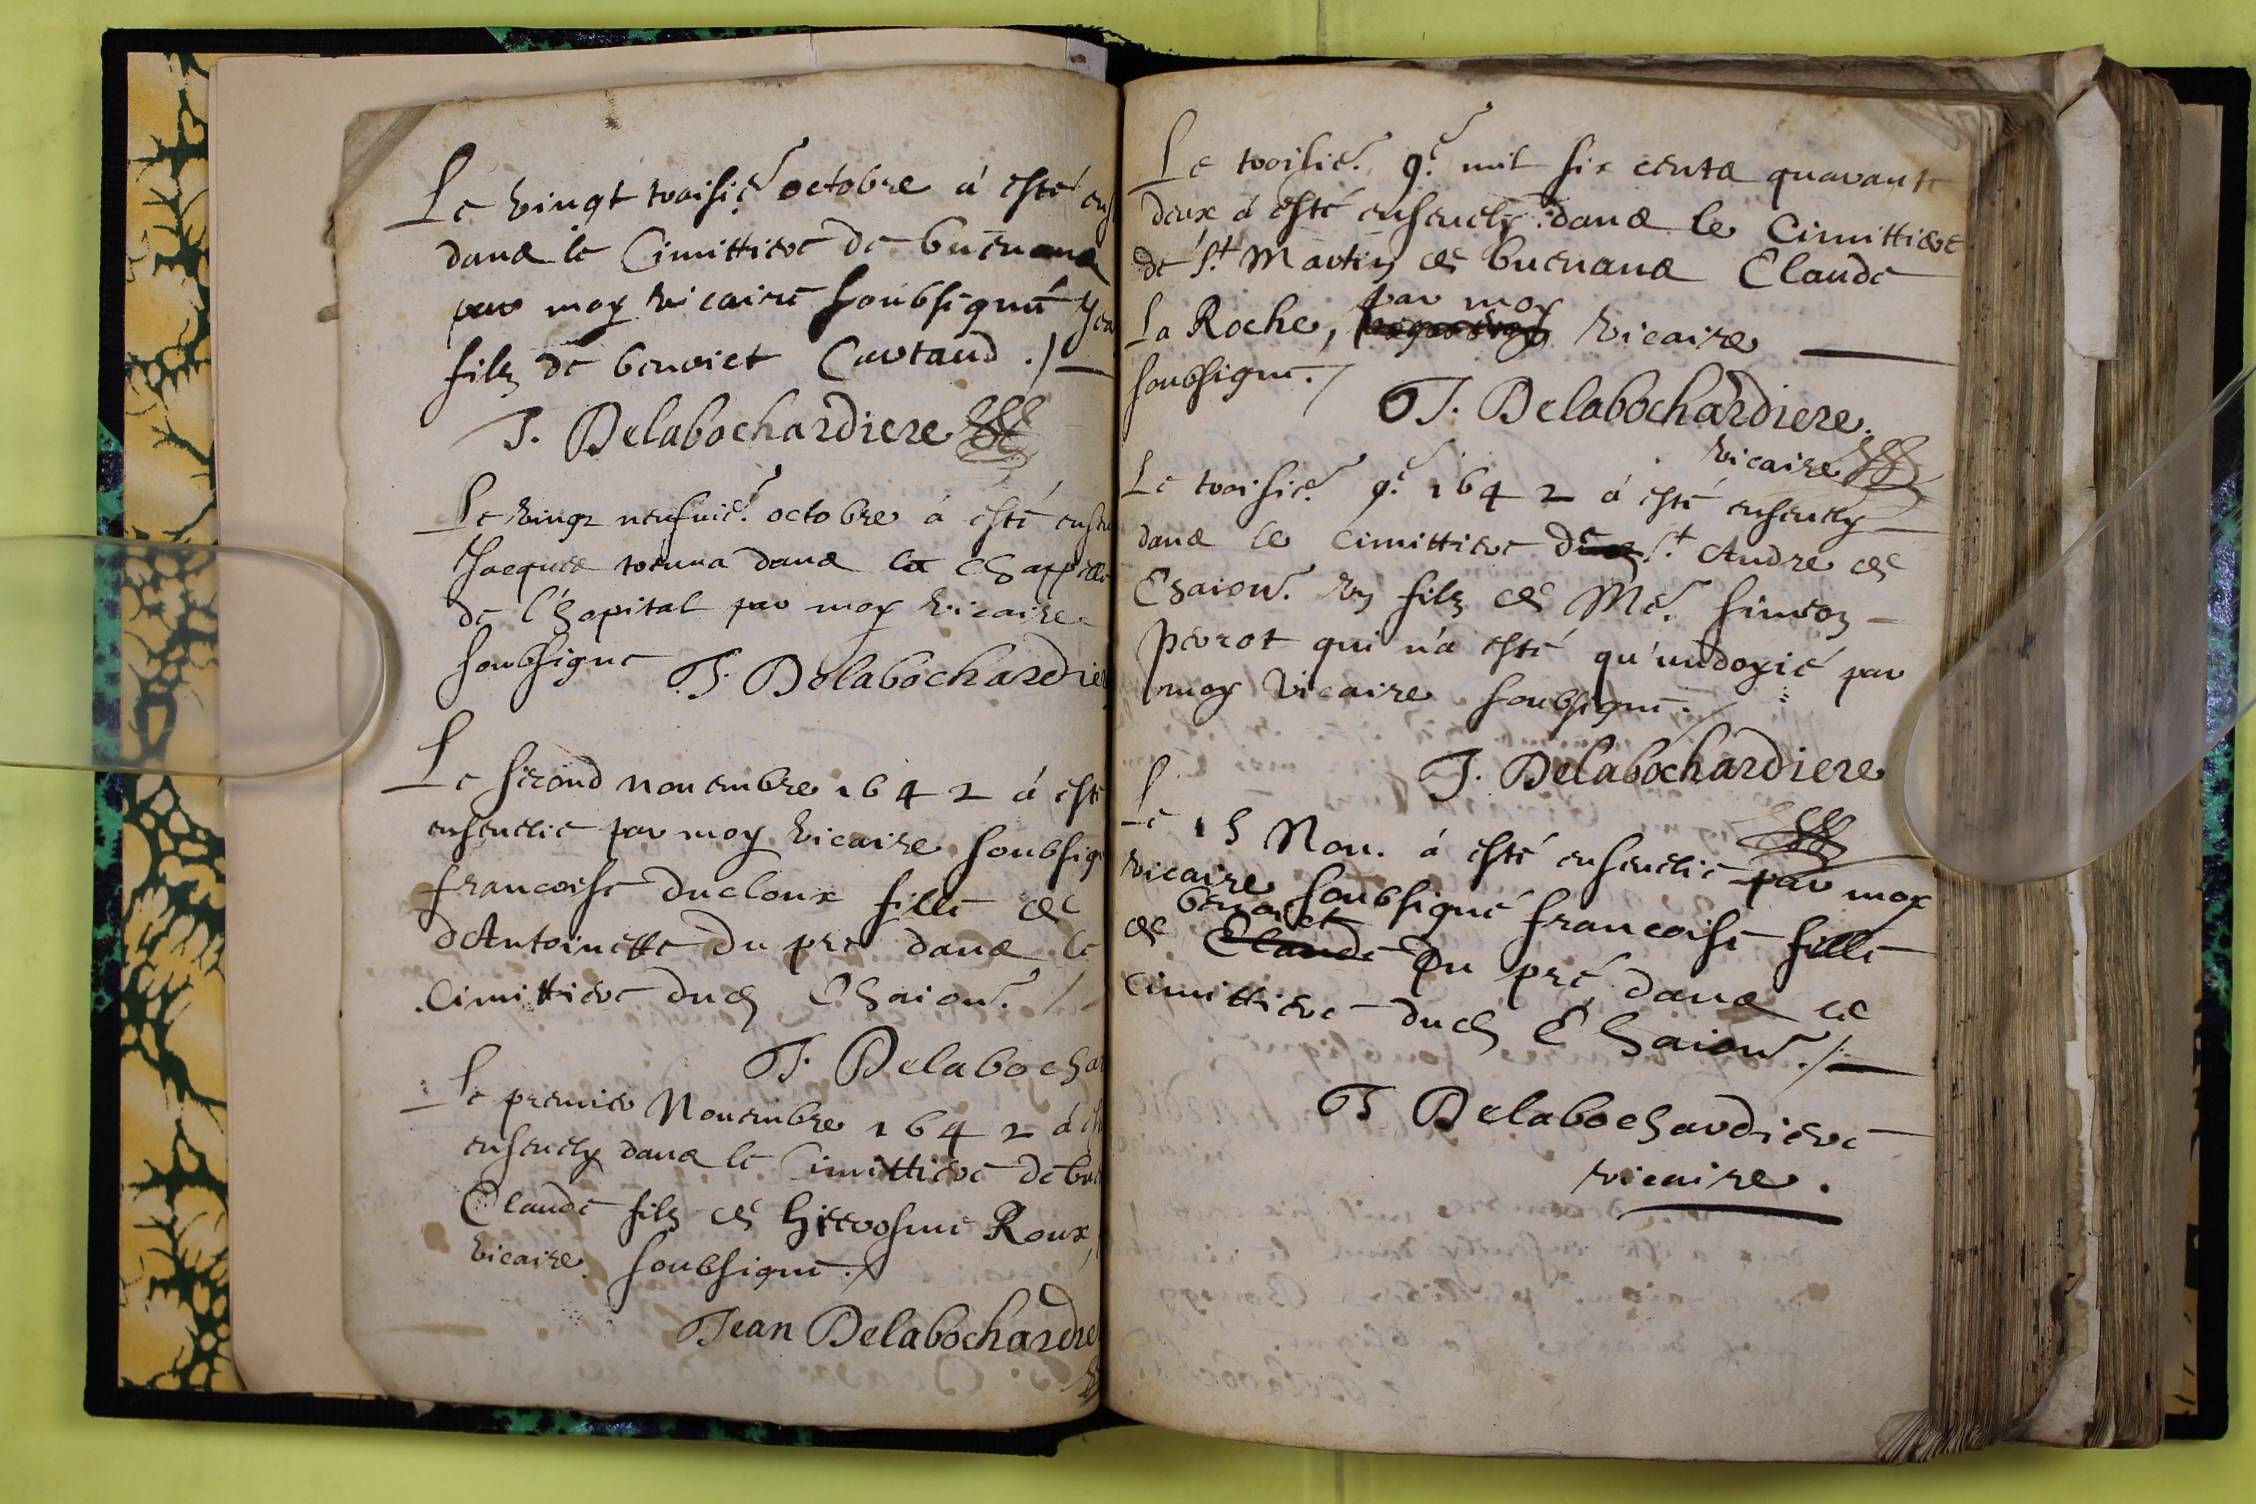 Le vingt troisie. octobre á esté ens
dans le Cimittiere de buenans
par moy vicaire soubsigné Jea
filz de benoict Cartaud ./
J. Delabochardiere
Le vingt neufuie. octobre á esté enseu
Jacques dans la chappelle
de l'hopital par moy vicaire
soubsigne J. Delabochardier
Le second nouembre 1642 á esté
enseuelie par moy vicaire soubsign
francoise ducloux fille de
d'Antoinette du pré dans le
Cimittiere dud Chaiour. /
J. Delabochar
Le premier Nouembre 1642 á est
enseuely dans le Cimittiere de bue
Claude filz de hierosme Roux,
vicaire soubsigné ./
Jean Delabochardie
Le troisie. 9.e mil six cents quarante
deux á esté enseuely dans le Cimittiere
de St. Martin de buenans Claude
La Roche, par moy vicaire
soubsigné. /
J. Delabochardiere.
vicaire
Le troisie. 9.e 1642 á esté enseuely
dans le cimittiere de St. Andre de
Chaiour. un filz de Me. simeon
perrot qui n'a esté qu'undoyié par
moy vicaire soubsigné. /
J. Delabochardiere
Le 15 Nou. á esté enseuelie par moy
vicaire soubsigné francoise fille
de Claude benoict Du pré dans le
cimittiere dud Chaiour. /
J Delabochardiere
vicaire.